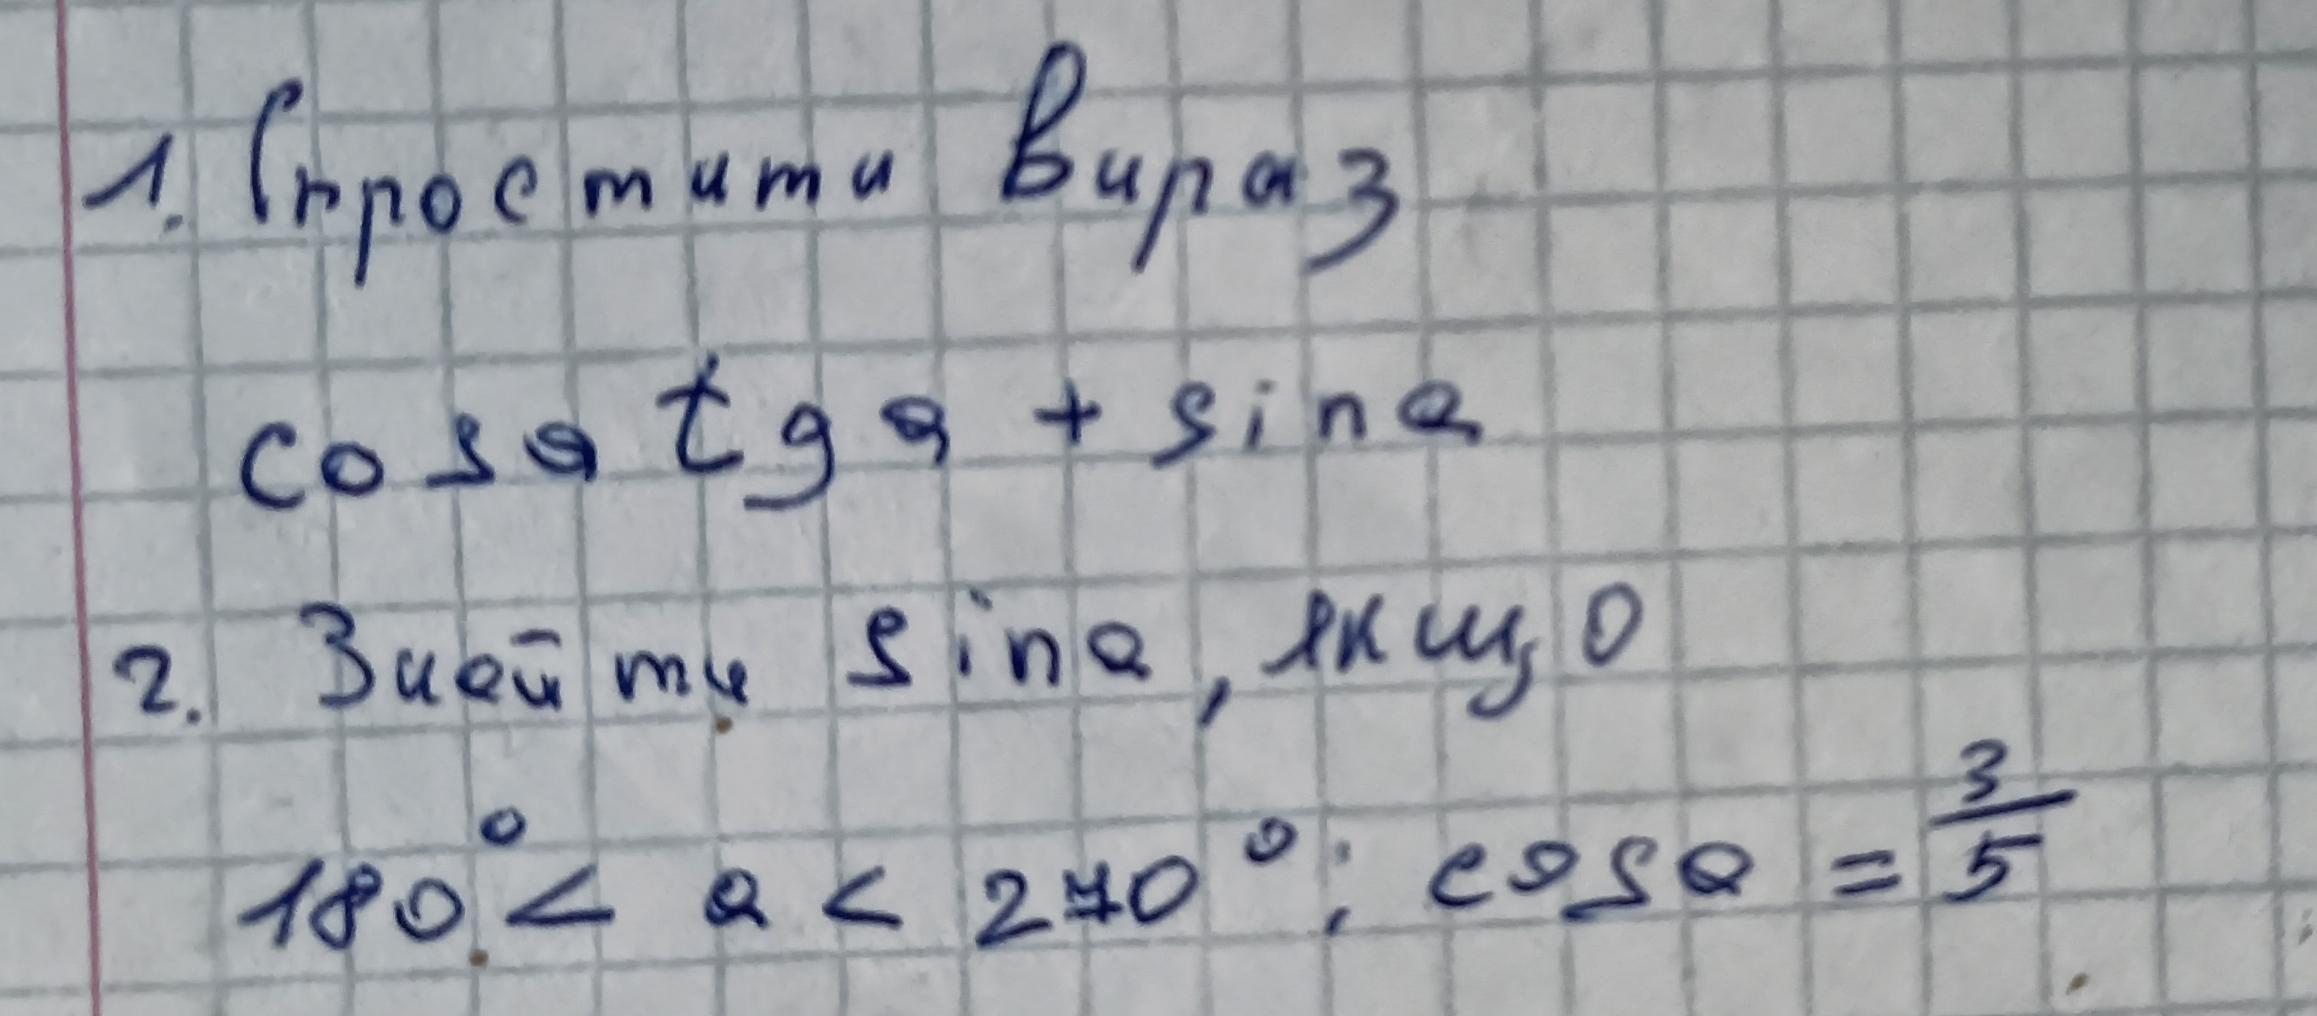 1. Спростити вираз
cosa tga + sina
2. Знайти sina, якщо
180° < a < 270°; cosa = 3/5